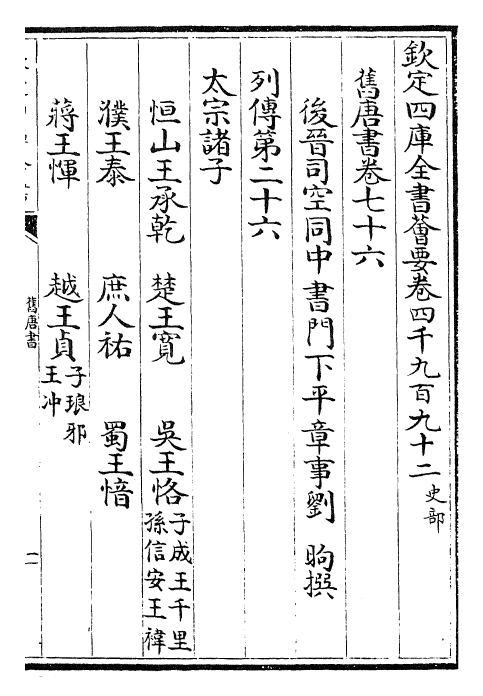 欽定四庫全書薈要卷四千九百九十二 史部
舊唐書卷七十六
後晉司空同中書門下平章事劉 昫撰
列傳第二十六
太宗諸子
恒山王承乾 楚王寬 吳王恪 子成王千里 孫信安王禕
濮王泰 庶人祐 蜀王愔
蔣王惲 越王貞 子琅邪王冲
舊唐書